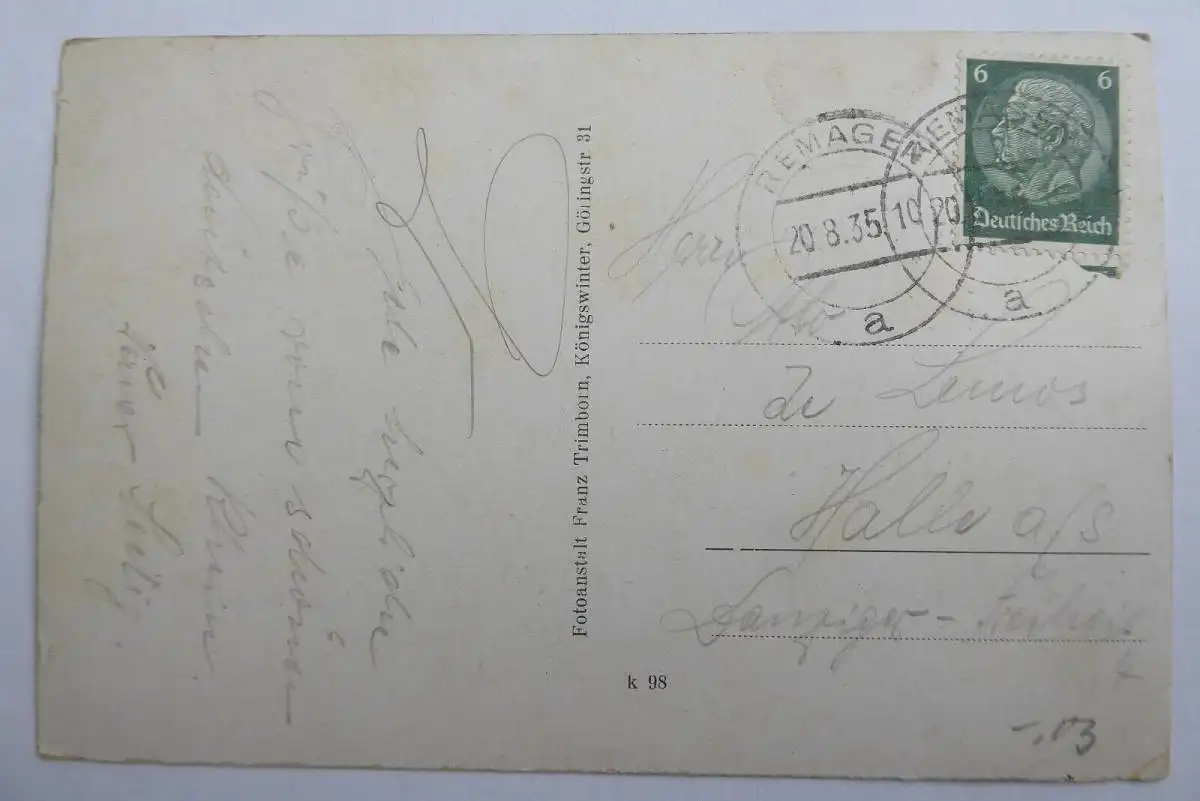 Viele herzliche
Grüße vom schönen
deutschen Rhein.
Fotoanstalt Franz Trimborn, Königswinter, Göllingstr 31
REMAGEN
20.8.35. 10
a
REM
20
a
6 6
Deutsches Reich
Herrn
De Lemos
Halle a/S
Danziger - Freiheit
k 98
-.03